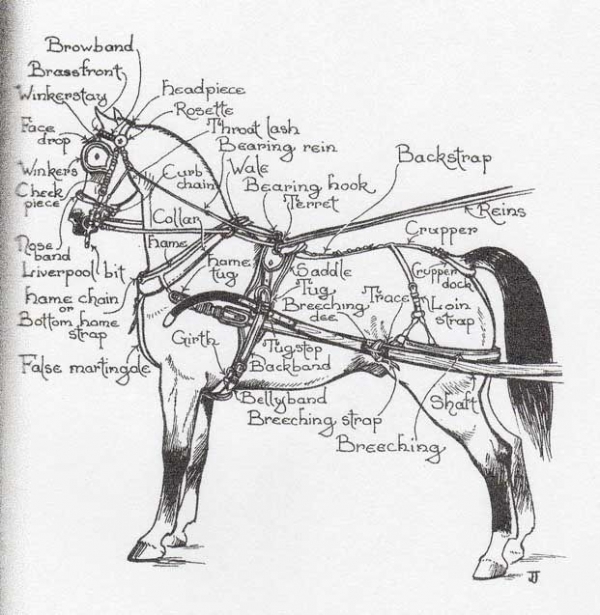 Browband
Brassfront
Winkerstay
Headpiece
Rosette
Face
drop
Throat lash
Bearing rein
Winkers
Curb
chain
Wale
Backstrap
Cheek
piece
Bearing hook
Terret
Reins
Collar
Crupper
Nose
band
Hame
Hame
tug
Saddle
Crupper
dock
Liverpool bit
Tug
Trace
Loin
strap
Hame chain
or
Bottom hame
strap
Breeching
dee
Girth
Tugstop
False martingale
Backband
Bellyband
Shaft
Breeching strap
Breeching
JJ